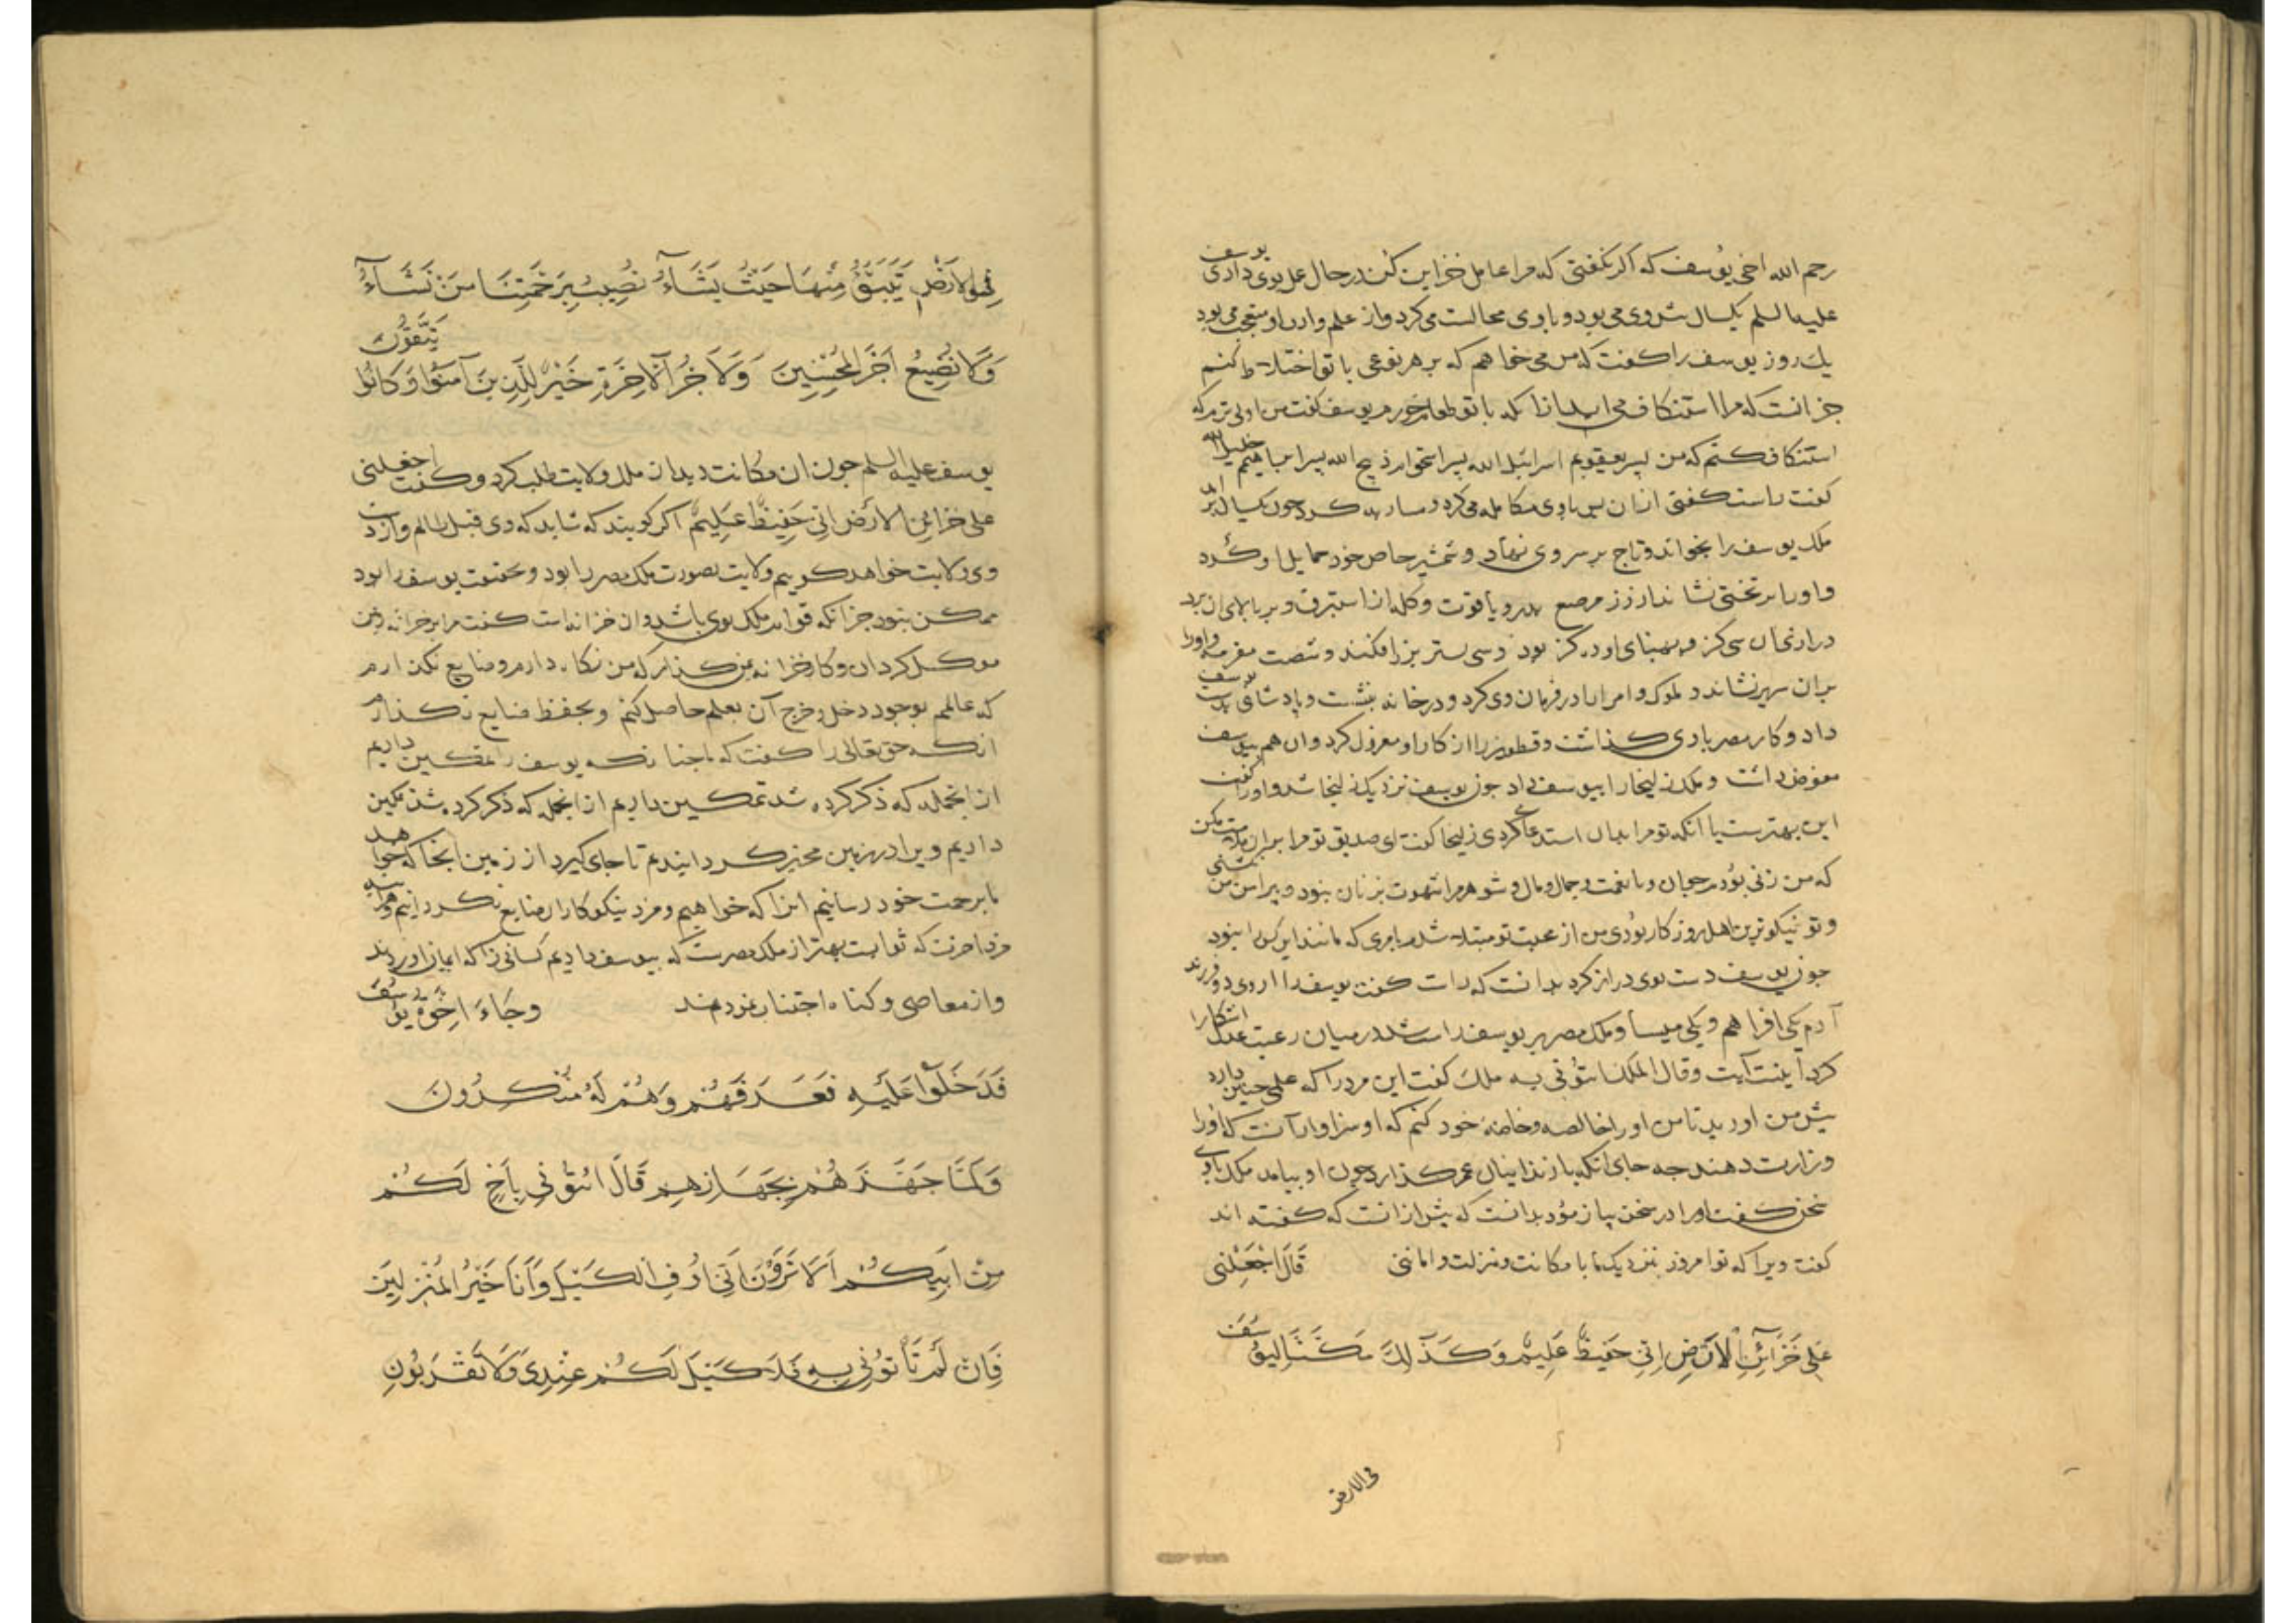 رحم الله اخی یوسف که اگر نگفتی که مرا عامل خزاین کن در حال عمل بوی دادی یوسف
علیه السلم یکسال پیش وی می بود و با وی مجالست می کرد و از علم و ادب او متعجب می بود
یک روز یوسف را گفت که من می خواهم که بر هر نوعی با تو اختلاط کنم
جز انست که مرا استنکاف می اید ازانکه با تو طعام خورم یوسف گفت من اولی ترم که
استنکاف کنم که من پسر یعقوبم اسرائیل الله پسر اسحق ام ذبیح الله پسر ابراهیم خلیل الله
گفت راست گفتی ازان پس با وی مکالمه می کرد چون یکسال بر امد
ملک یوسف را بخواند و تاج بر سر وی نهاد و شمشیر خاص خود حمایل او کرد
و او را بر تختی نشاند از زر مرصع بدر و یاقوت و کله از استبرق و بر بالای ان برد
درازی ان سی گز و پهنای او ده گز بود و سی بستر بزر افکند و شصت مفرمه و او را
بران سریر نشاند و ملوک و امرا را در فرمان وی کرد و در خانه بنشست و پادشاهی بدست یوسف
داد و کار مصر با وی گذاشت و قطفیر را از کار او معزول کرد وان هم بیوسف
مفوض داشت و ملک زلیخا را بیوسف داد چون یوسف نزدیک زلیخا شد و او را گفت
این بهترست یا انکه تو مرا بدان استدعا کردی زلیخا گفت ای صدیق تو مرا بران ملامت مکن
که من زنی بودم جوان و با نعمت و جمال و مال و شوهر مرا شهوت بزنان نبود و پیرامن من نگشتی
و تو نیکوترین اهل روزگار بودی من از محبت تو مبتلا شدم بامری که مانند این کس را نبود
چون یوسف دست بوی دراز کرد بدانست که راست گفت یوسف را از وی دو فرزند
آدم یکی افراهم و یکی میسا و ملک مصر بر یوسف راست شد در میان رعیت عدل اشکارا
کرد اینست آیت و قال الملک ائتونی به ملک گفت این مرد را که علمی چنین دارد
پیش من اورید تا من او را خالصه و خاصهٔ خود کنم که او سزاوار آنست که او را
وزارت دهند چه جای انکه با زندانیان عمر گذارد چون او بیامد ملک با وی
سخن گفت و او را در سخن بیازمود بدانست که بیش ازانست که گفته اند
گفت ویرا که تو امروز بنزدیک ما با مکانت و منزلت و امانتی قَالَ اجْعَلْنِی
عَلی خَزَآئِنِ الْاَرْضِ اِنِّی حَفِیظٌ عَلِیمٌ وَکَذٰلِکَ مَکَّنَّا لِیُوسُفَ
فی الارض
فِی الْاَرْضِ یَتَبَوَّأُ مِنْهَا حَیْثُ یَشَآءُ نُصِیبُ بِرَحْمَتِنَا مَنْ نَشَآءُ
وَلَا نُضِیعُ اَجْرَ الْمُحْسِنِینَ وَلَاَجْرُ الْآخِرَةِ خَیْرٌ لِلَّذِینَ آمَنُوا وَکَانُوا یَتَّقُونَ
یوسف علیه السلم چون ان مکانت دید از ملک ولایت طلب کرد و گفت اجعلنی
علی خزائن الارض انی حفیظ علیم اگر گویند که شاید که وی قبل ظالم و از دست
وی ولایت خواهد گوییم ولایت بصورت ملک مصر را بود و بحقیقت یوسف را بود
ممکن نبود جز انکه قواعد ملک بوی باشد وان خزانه است گفت مرا بر خزانه
موکل گردان و کار خزانه بمن گذار که من نگاه دارم و ضایع نگذارم
که عالمم بوجوه دخل و خرج آن بعلم حاصل کنم و بحفظ ضایع نگذارم
انگه حق تعالی را گفت که همچنانکه یوسف را تمکین دادیم
ازانجمله که ذکر کرده شد تمکین دادیم ازانجمله که ذکر کرده شد تمکین
دادیم ویرا در زمین مخیر گردانیدیم تا جای گیرد از زمین انجا که خواهد
ما برحمت خود رسانیم انرا که خواهیم و مزد نیکوکاران ضایع نگردانیم
مزد اخرت که ثوابست بهتر از ملک مصرست که بیوسف دادیم کسانی را که ایمان اوردند
و از معاصی و گناه اجتناب نمودند وَجَاءَ اِخْوَةُ یُوسُفَ
فَدَخَلُوا عَلَیْهِ فَعَرَفَهُمْ وَهُمْ لَهُ مُنْکِرُونَ
وَلَمَّا جَهَّزَهُمْ بِجَهَازِهِمْ قَالَ ائْتُونِی بِاَخٍ لَکُمْ
مِنْ اَبِیکُمْ اَلَا تَرَوْنَ اَنِّی اُوفِ الْکَیْلَ وَاَنَا خَیْرُ الْمُنْزِلِینَ
فَاِنْ لَمْ تَأْتُونِی بِهِ فَلَا کَیْلَ لَکُمْ عِنْدِی وَلَا تَقْرَبُونِ